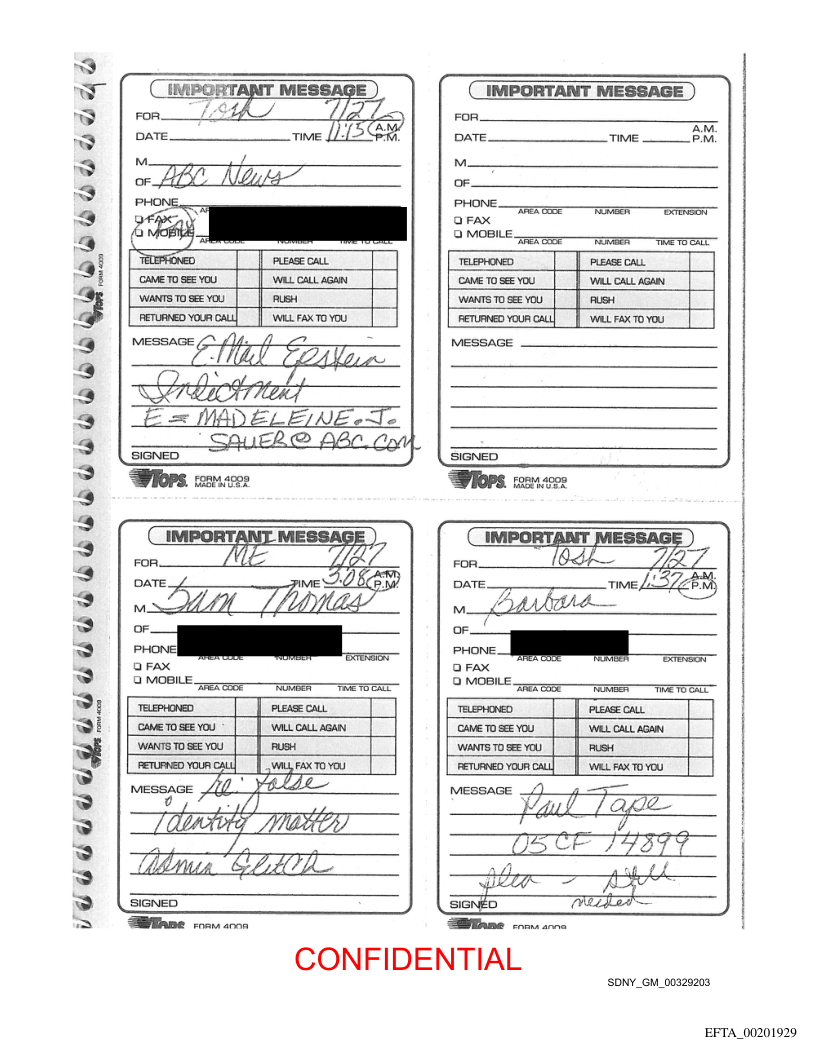 IMPORTANT MESSAGE
FOR Tosh 7/27
DATE TIME 11:15 A.M.
P.M.
M
OF ABC News
PHONE
FAX
MOBILE
AREA CODE NUMBER TIME TO CALL
TELEPHONED PLEASE CALL
CAME TO SEE YOU WILL CALL AGAIN
WANTS TO SEE YOU RUSH
RETURNED YOUR CALL WILL FAX TO YOU
MESSAGE E.Mail Epstein
Indictment
E = MADELEINE.J.
SAUER@ABC.COM
SIGNED
TOPS FORM 4009
MADE IN U.S.A.
TOPS FORM 4009
IMPORTANT MESSAGE
FOR
DATE TIME A.M.
P.M.
M
OF
PHONE
AREA CODE NUMBER EXTENSION
FAX
MOBILE
AREA CODE NUMBER TIME TO CALL
TELEPHONED PLEASE CALL
CAME TO SEE YOU WILL CALL AGAIN
WANTS TO SEE YOU RUSH
RETURNED YOUR CALL WILL FAX TO YOU
MESSAGE
SIGNED
TOPS FORM 4009
MADE IN U.S.A.
IMPORTANT MESSAGE
FOR ME 7/27
DATE TIME 3:08 A.M.
P.M.
M Sam Thomas
OF
PHONE
AREA CODE NUMBER EXTENSION
FAX
MOBILE
AREA CODE NUMBER TIME TO CALL
TELEPHONED PLEASE CALL
CAME TO SEE YOU WILL CALL AGAIN
WANTS TO SEE YOU RUSH
RETURNED YOUR CALL WILL FAX TO YOU
MESSAGE re: false
identity matter
Admin Glitch
SIGNED
TOPS FORM 4009
TOPS FORM 4009
IMPORTANT MESSAGE
FOR Tosh 7/27
DATE TIME 1:37 A.M.
P.M.
M Barbara
OF
PHONE
AREA CODE NUMBER EXTENSION
FAX
MOBILE
AREA CODE NUMBER TIME TO CALL
TELEPHONED PLEASE CALL
CAME TO SEE YOU WILL CALL AGAIN
WANTS TO SEE YOU RUSH
RETURNED YOUR CALL WILL FAX TO YOU
MESSAGE Paul Tape
05CF 14899
plea - still
needed
SIGNED
TOPS FORM 4009
CONFIDENTIAL
SDNY_GM_00329203
EFTA_00201929